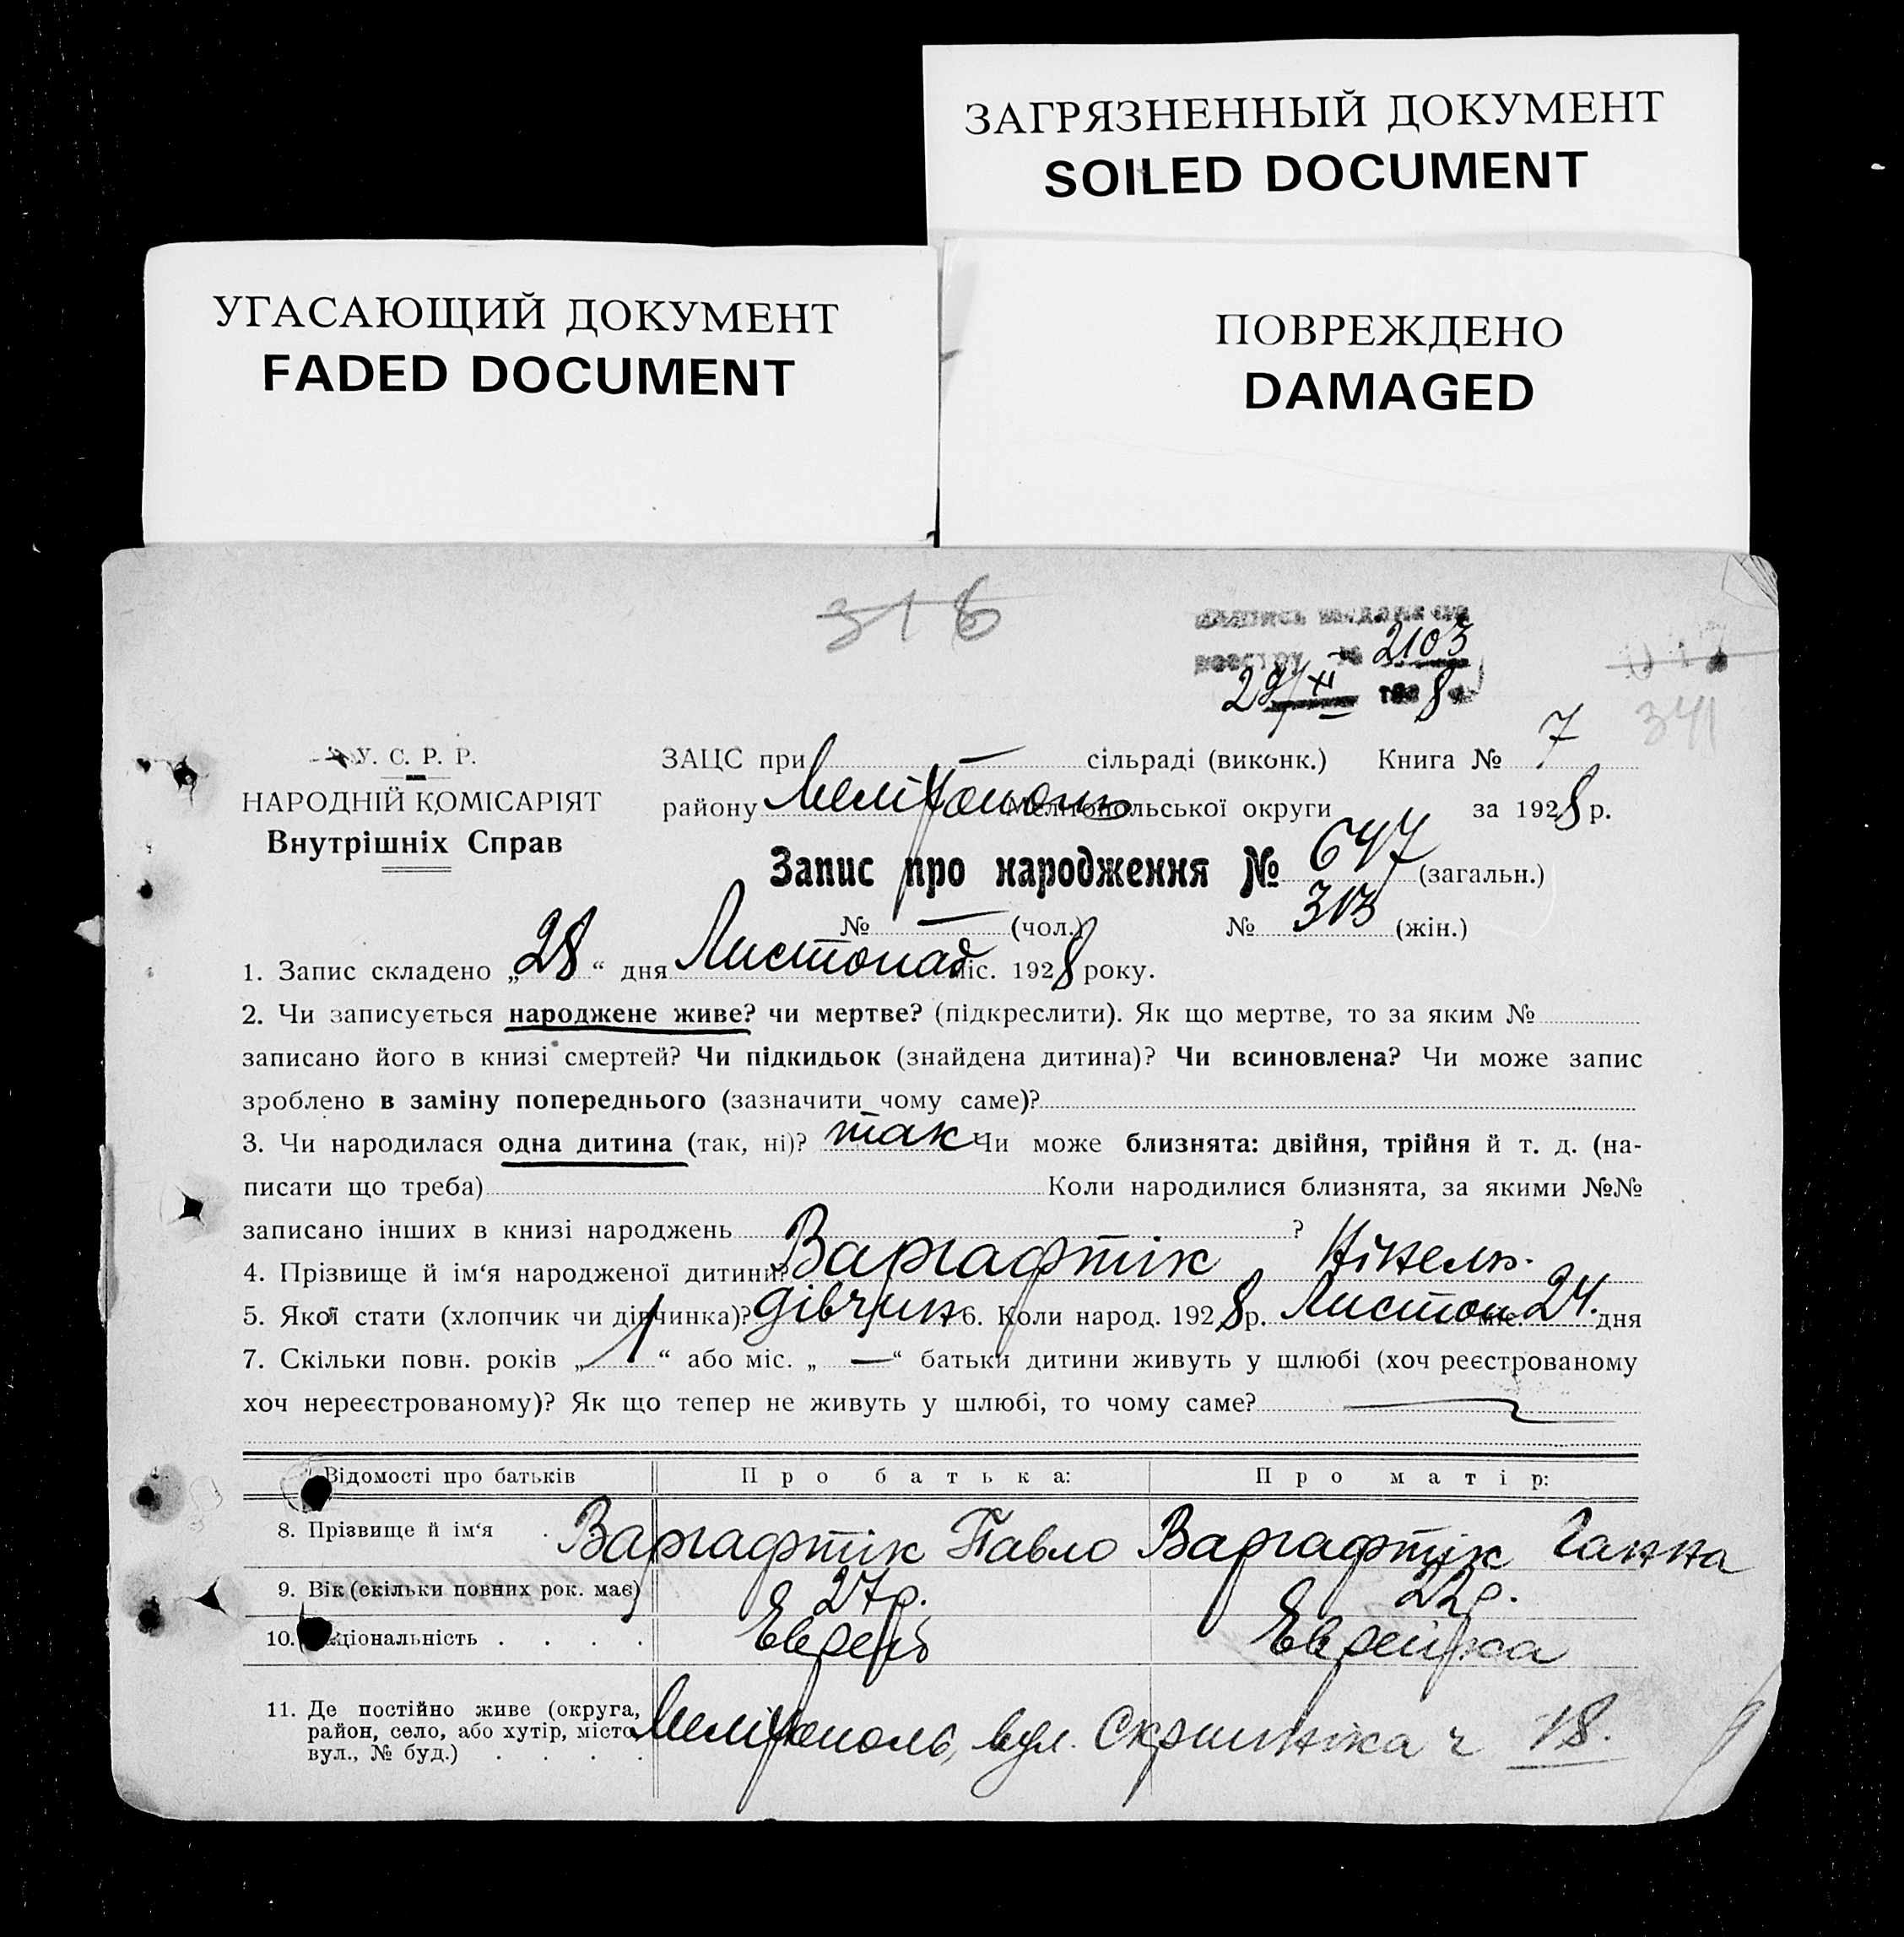 ЗАГРЯЗНЕННЫЙ ДОКУМЕНТ
SOILED DOCUMENT
УГАСАЮЩИЙ ДОКУМЕНТ
FADED DOCUMENT
ПОВРЕЖДЕНО
DAMAGED
316
реєстру № 2103
29/XI 1928
341
У. С. Р. Р.
НАРОДНІЙ КОМІСАРІЯТ
Внутрішніх Справ
ЗАЦС при — сільраді (виконк.) Книга № 7
району Мелітополь Мелітопольської округи за 1928 р.
Запис про народження № 647 (загальн.)
№ — (чол.) № 313 (жін.)
1. Запис складено „28“ дня Листопад міс. 1928 року.
2. Чи записується народжене живе? чи мертве? (підкреслити). Як що мертве, то за яким №
записано його в книзі смертей? Чи підкидьок (знайдена дитина)? Чи всиновлена? Чи може запис
зроблено в заміну попереднього (зазначити чому саме)?
3. Чи народилася одна дитина (так, ні)? так Чи може близнята: двійня, трійня й т. д. (на-
писати що треба) Коли народилися близнята, за якими №№
записано інших в книзі народжень ?
4. Прізвище й ім‘я народженої дитини? Варгафтік Нінель.
5. Якої стати (хлопчик чи дівчинка)? дівчин 6. Коли народ. 1928 р. Листоп. міс. 24. дня
7. Скільки повн. років „1“ або міс. „—“ батьки дитини живуть у шлюбі (хоч реєстрованому
хоч нереєстрованому)? Як що тепер не живуть у шлюбі, то чому саме?
Відомості про батьків Про батька: Про матір:
8. Прізвище й ім‘я . Варгафтік Павло Варгафтік Ганна
9. Вік (скільки повних рок. має) 27 р. 22 р.
10. Національність . . . . Еврей Еврейка
11. Де постійно живе (округа,
район, село, або хутір, місто Мелітополь, вул. Скрипніка ч 18.
вул., № буд.) . . . .